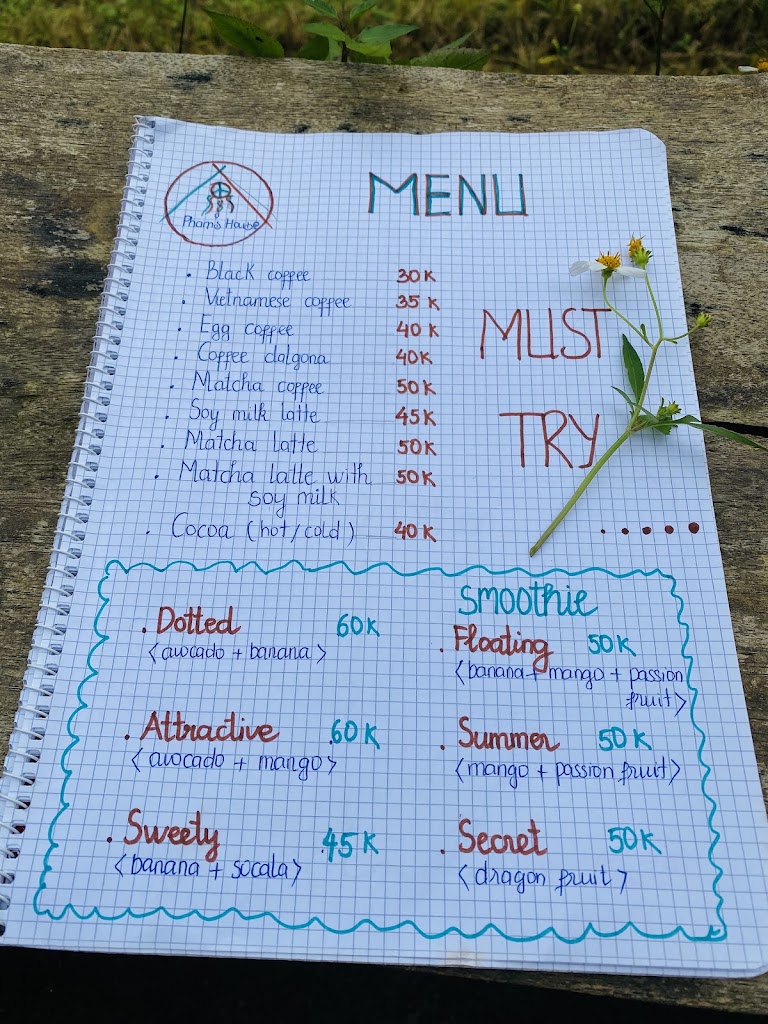 Pham's House
MENU
. Black coffee 30K
. Vietnamese coffee 35K
. Egg coffee 40K
. Coffee dalgona 40K
. Matcha coffee 50K
. Soy milk latte 45K
. Matcha latte 50K
. Matcha latte with 50K
soy milk
. Cocoa (hot/cold) 40K
MUST
TRY
.....
smoothie
. Dotted 60K
<avocado + banana>
. Attractive 60K
<avocado + mango>
. Sweety 45K
<banana + socala>
. Floating 50K
<banana + mango + passion
fruit>
. Summer 50K
<mango + passion fruit>
. Secret 50K
<dragon fruit>